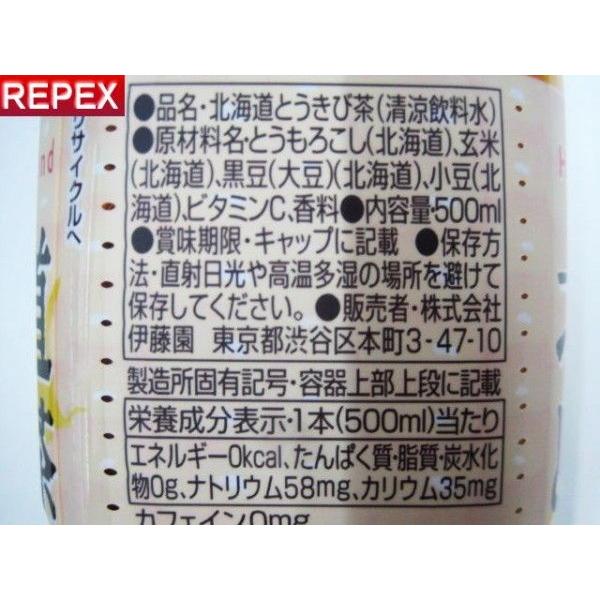 REPEX
リサイクルへ
●品名・北海道とうきび茶(清涼飲料水)
●原材料名・とうもろこし(北海道)、玄米
(北海道)、黒豆(大豆)(北海道)、小豆(北
海道)、ビタミンC、香料●内容量・500ml
●賞味期限・キャップに記載 ●保存方
法・直射日光や高温多湿の場所を避けて
保存してください。●販売者・株式会社
伊藤園 東京都渋谷区本町3-47-10
製造所固有記号・容器上部上段に記載
栄養成分表示・1本(500ml)当たり
エネルギー0kcal、たんぱく質・脂質・炭水化
物0g、ナトリウム58mg、カリウム35mg
カフェイン0mg